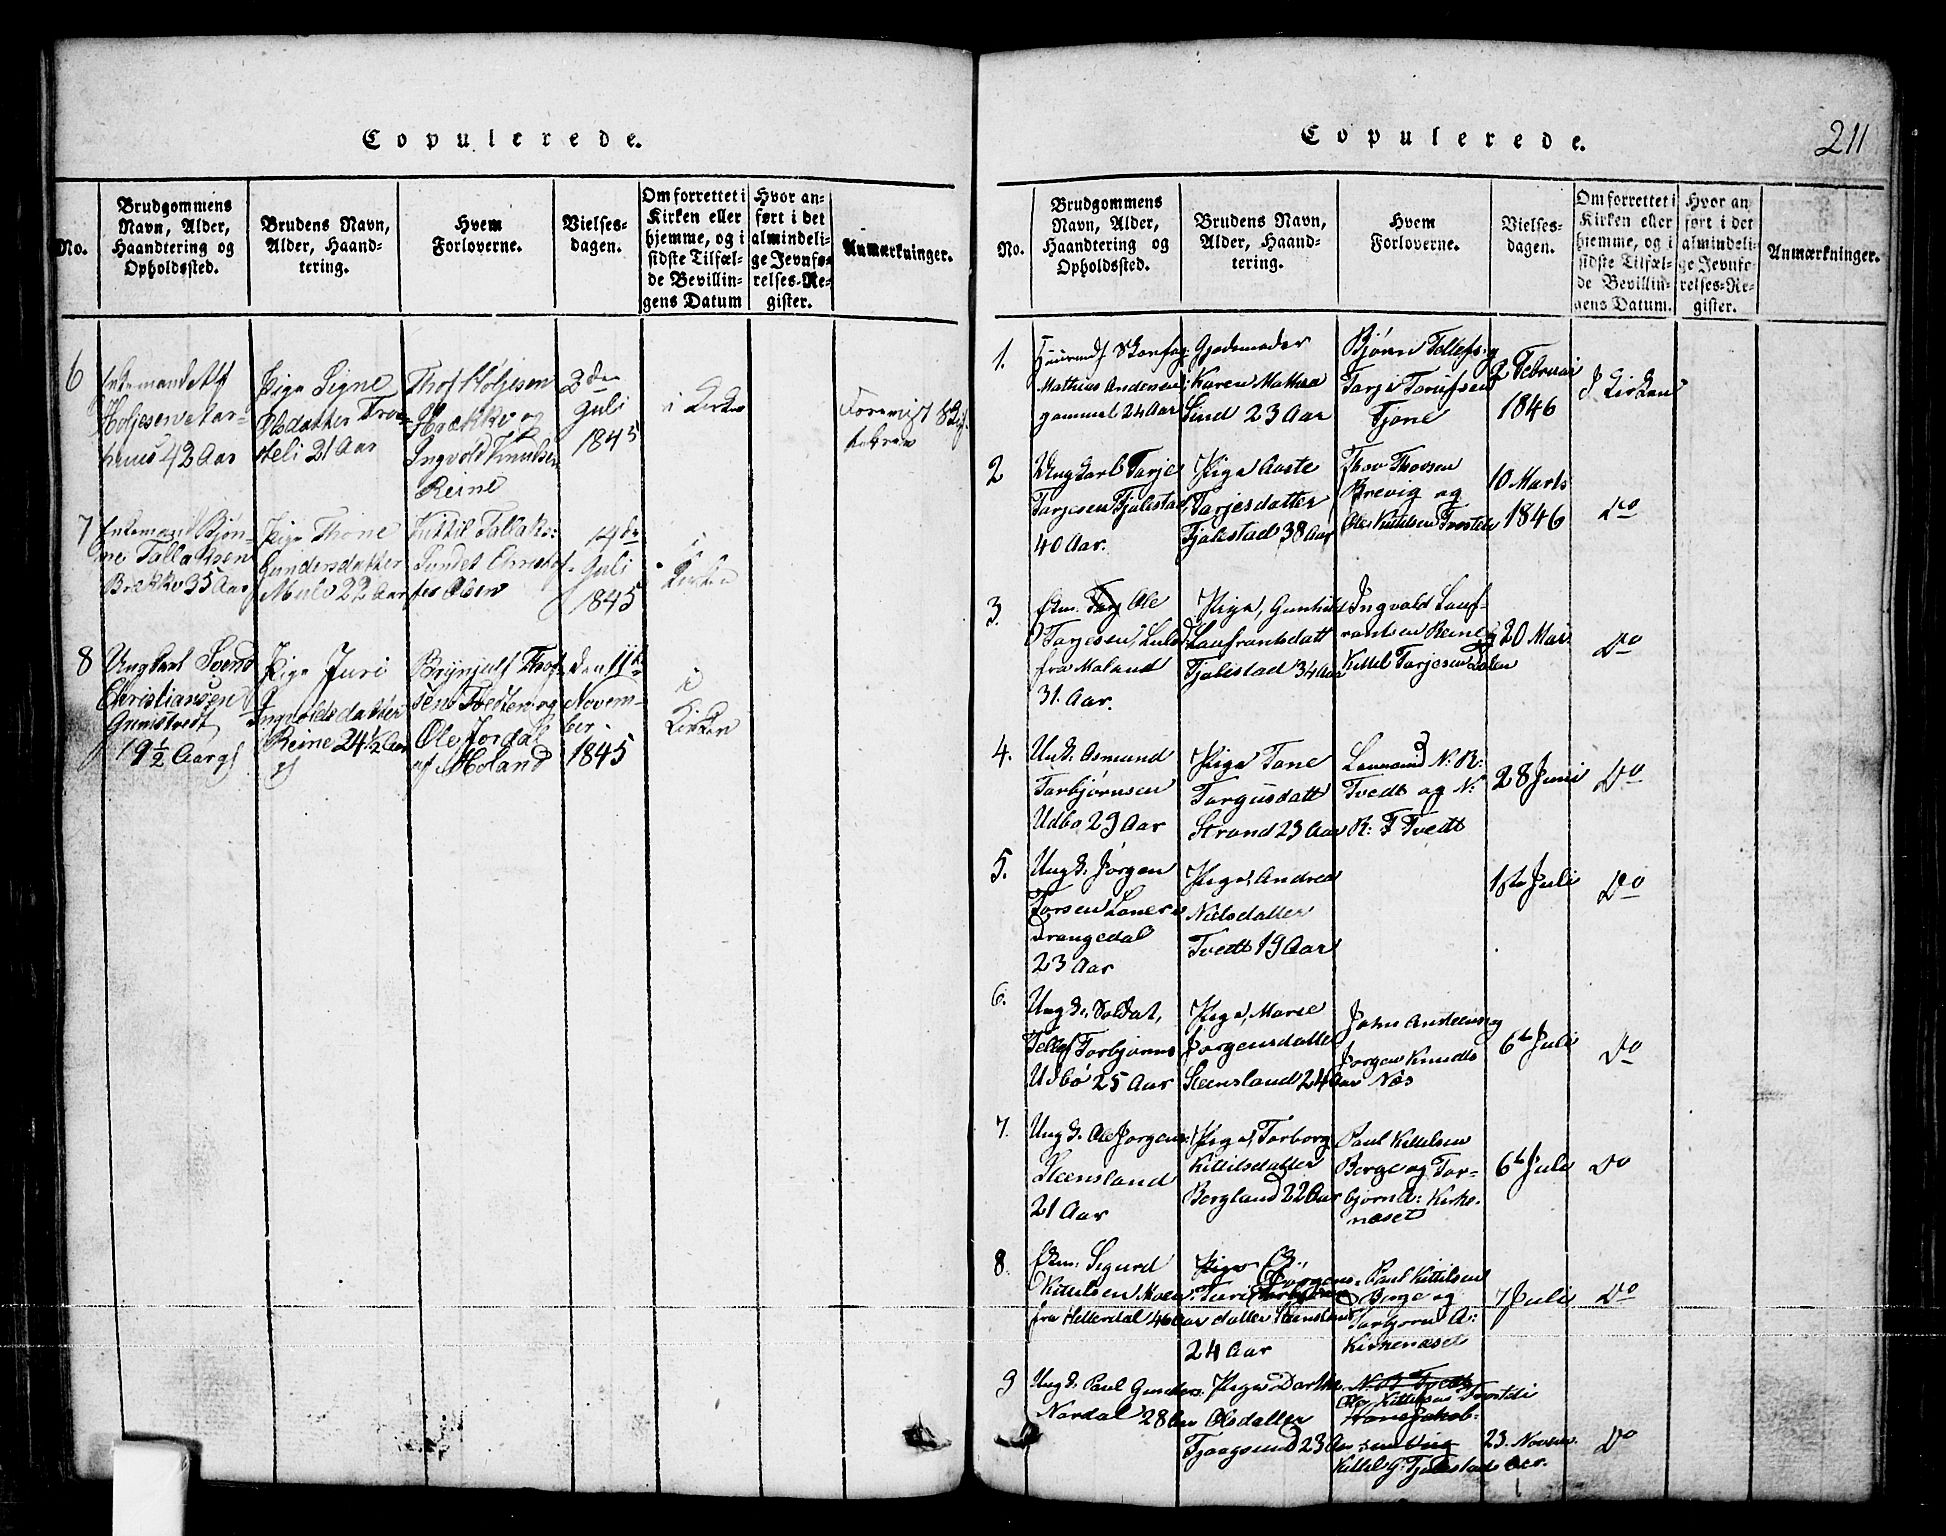 Copulerede.
No.
Brudgommens
Navn, Alder,
Haandtering og
Opholdssted.
Brudens Navn,
Alder, Haand-
tering.
Hvem
Forloverne.
Vielses-
dagen.
Om forrettet i
Kirken eller
hjemme, og i
sidste Tilfæl-
de Bevillin-
gens Datum
Hvor an-
ført i det
almindeli-
ge Jevnfø-
relses-Re-
gister.
Anmærkninger.
6
Enkemand Alf
Holjesen
42 Aar
Pige Signe
Olsdatter Tro-
steli 21 Aar
Thof Holjesen
Hække og
Ingvold Knudsen
Reine
2den
Juli
1845
i Kirken
7
Enkemand Bjøn-
ne Tallaksen
Brække 35 Aar
Pige Thone
Gundersdatter
22 Aar
Kittil Tallaks:
Sundet Christof-
fer Olsen
14de
Juli
1845
i
Kirken
8
Ungkarl Svend
Christiansen
Gunistvedt
19 1/2 Aar gl
Pige Juri
Ingvoldsdatter
Reine 24 1/2 Aar
gl
Brynjulf Thof-
sen Tvedten og
Ole Jordal
af Moland
den 11te
Novem-
ber
1845
i
Kirken
Copulerede.
211
No.
Brudgommens
Navn, Alder,
Haandtering og
Opholdssted.
Brudens Navn,
Alder, Haand-
tering.
Hvem
Forloverne.
Vielses-
dagen.
Om forrettet i
Kirken eller
hjemme, og i
sidste Tilfæl-
de Bevillin-
gens Datum.
Hvor an-
ført i det
almindeli-
ge Jevnfø-
relses-Re-
gister.
Anmærkninger.
1.
Mathias Andersen
gammel 24 Aar
Gjødemoder
Karen Mathea
Lind 23 Aar
Bjørn Tellefs: og
Tarje Torufsen
Tjøne
2 Februar
1846
I Kirken
2
Ungkarl Tarje
Tarjesen Fjalestad
40 Aar.
Pige Aaste
Tarjesdatter
Fjalestad 38 Aar
Thov Thovsen
Brevig og
Ole Kittilsen Trosteli
10 Marts
1846
Do
3.
Ekm. Ole
Tarjesen,
fra Moland
31. Aar.
Pige, Gunhild
Laufrantsdatt
Fjalestad 34 Aar
Ingvald Lauf-
rantsen Reine og
Kittel Tarjesen
20 Mai
Do
4.
Ungk. Asmund
Torbjørnsen
Udbø 29 Aar
Pige Tone
Targusdatt
Strand 23 Aar
N. R:
Tvedt og N:
R: F Tvedt
28 Juni
Do
5.
Ungk. Jørgen
Torsen
Drangedal
23 Aar
Pige, Andrea
Nielsdatter
Tvedt 19 Aar
1ste Juli
Do
6.
Ungk. Soldat,
Tellef Torbjørns
Udbø 25 Aar
Pige, Marie
Jørgensdatte
Steensland 24 Aar
John Anstensen og
Jørgen Knudts
Næs
6te Juli
Do
7.
Ungk. Ole Jørgens:
Steensland
21 Aar
Pige, Torborg
Kittilsdatter
Bergland 22 Aar
Paul Kittilsen
Berge og Tor-
bjørn A: Kirke-
næset
6te Juli
Do
8.
Ekm: Sigurd
Kittilsen Moen
fra Hitterdal 46 Aar
Pige
Turi Jørgens-
datter Steensland
24 Aar
Paul Kittilsen
Berge og
Torbjørn A:
Kirkenæset
7 Juli
Do
9
Ungk. Paul Gunders:
Nordal 28 Aar
Pige Dorthe
Olsdatter
23 Aar
N. R. Tvedt
Ole Kittilsen Trosteli
Hans Jakob-
sen Vrig
Kittel G: Fjalestad
23. Novem-
ber.
Do